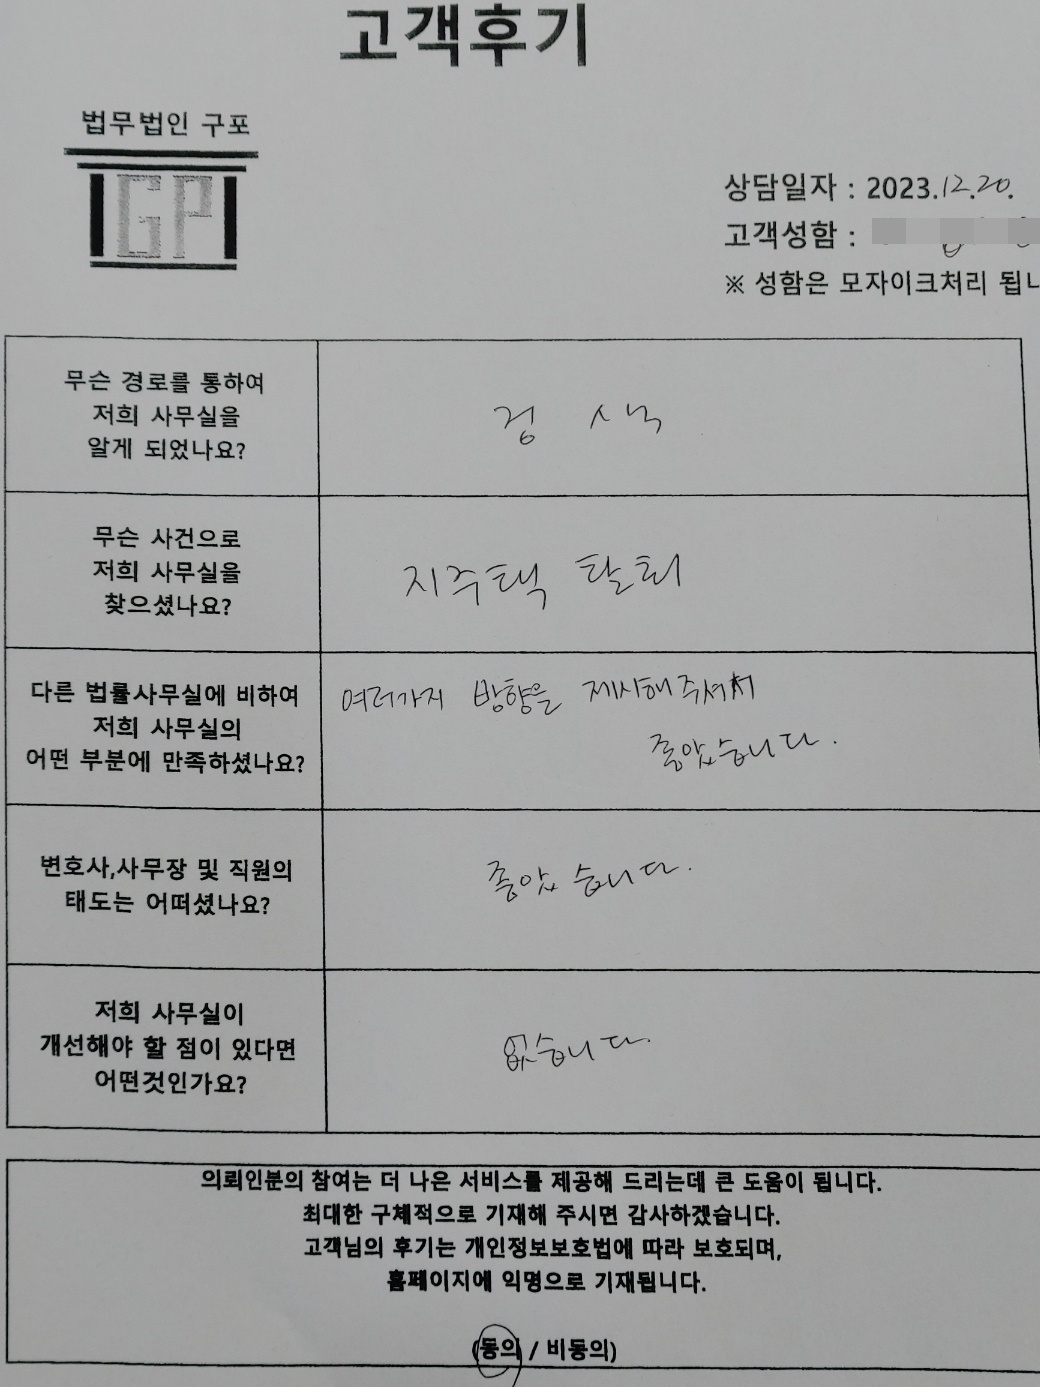 고객후기
법무법인 구포
GP
상담일자 : 2023.12.20.
고객성함 :
※ 성함은 모자이크처리 됩니
무슨 경로를 통하여
저희 사무실을
알게 되었나요?
검 색
무슨 사건으로
저희 사무실을
찾으셨나요?
지주택 탈퇴
다른 법률사무실에 비하여
저희 사무실의
어떤 부분에 만족하셨나요?
여러가지 방향을 제시해주셔서
좋았습니다.
변호사,사무장 및 직원의
태도는 어떠셨나요?
좋았습니다.
저희 사무실이
개선해야 할 점이 있다면
어떤것인가요?
없습니다.
의뢰인분의 참여는 더 나은 서비스를 제공해 드리는데 큰 도움이 됩니다.
최대한 구체적으로 기재해 주시면 감사하겠습니다.
고객님의 후기는 개인정보보호법에 따라 보호되며,
홈페이지에 익명으로 기재됩니다.
(동의 / 비동의)